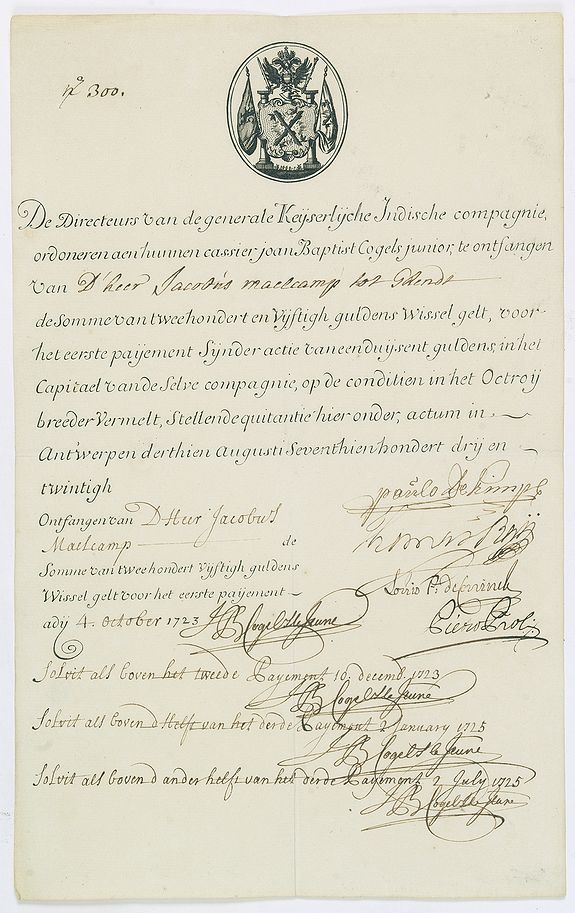 nº 300.
De Directeurs van de generale Keyserlycke Indische compagnie,
ordoneren aen hunnen cassier joan Baptist Cogels junior, te ontfangen
van D'heer Jacobus maelcamp tot Ghendt
de Somme van tweehondert en Vyftigh guldens Wissel gelt, voor
het eerste paijement Synder actie van een duysent guldens, in het
Capitael van de Selve compagnie, op de conditien in het Octroij
breeder Vermelt, Stellende quitantie hier onder, actum in
Antwerpen derthien Augusti Seventhien hondert drij en
twintigh
paulo De kimpe
Ontfangen van D Heer Jacobus
Maelcamp de
Somme van tweehondert Vyftigh guldens
Louis F. de Coninck
Wissel gelt voor het eerste paijement
adij 4. october 1723 JB Cogels le Jeune
Piero Proli
Solvit als boven het tweede Payement 10 decemb. 1723
JB Cogels le Jeune
Solvit als boven d'Helft van het derde Payement 2 January 1725
JB Cogels le Jeune
Solvit als boven d'ander helft van het derde Payement 2 July 1725
JB Cogels le Jeune